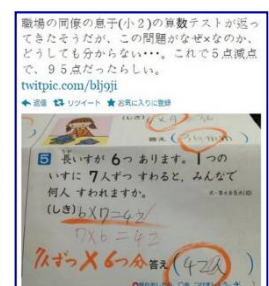 職場の同僚の息子(小2)の算数テストが返っ
てきたそうだが、この問題がなぜ×なのか、
どうしても分からない・・・。これで5点減点
で、95点だったらしい。
twitpic.com/blj9ji
返信 リツイート ★お気に入りに登録
5 長いすが 6つ あります。1つの
いすに 7人ずつ すわると、みんなで
何人 すわれますか。
(しき) 6×7=42
7×6=42
7人ずつ×6つ分 答え (42人)